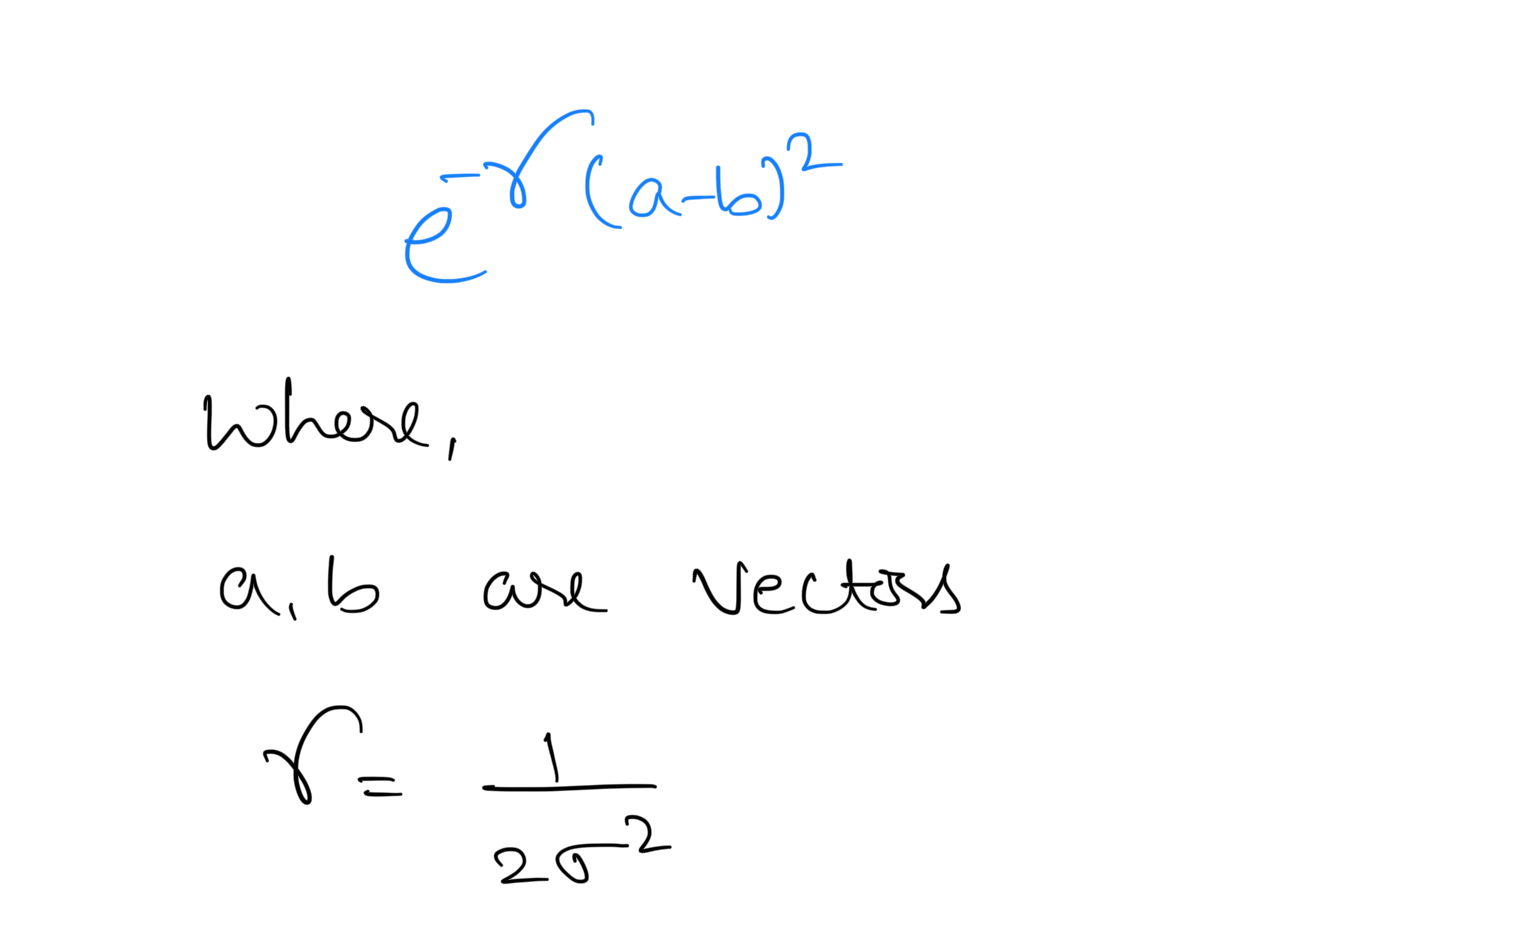 e^{-γ(a-b)^2}
where,
a, b are vectors
γ = \frac{1}{2σ^2}